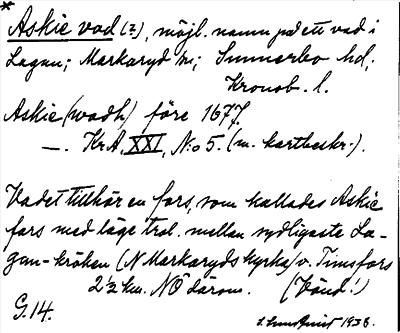 * Askie vad (?), möjl. namn på ett vad i
Lagan; Markaryd sn; Sunnerbo hd;
Kronob. l.
Askie (wadh) före 1677.
—. KrA, XXI, No 5. (m. kartbeskr.).
Vadet tillhör en fors, som kallades Askie
fors med läge trol. mellan sydligaste La-
gan-kröken (N Markaryds kyrka) o. Timsfors
2 ½ km. NÖ därom. (Vänd!)
G. 14.
S. Lundquist 1938.